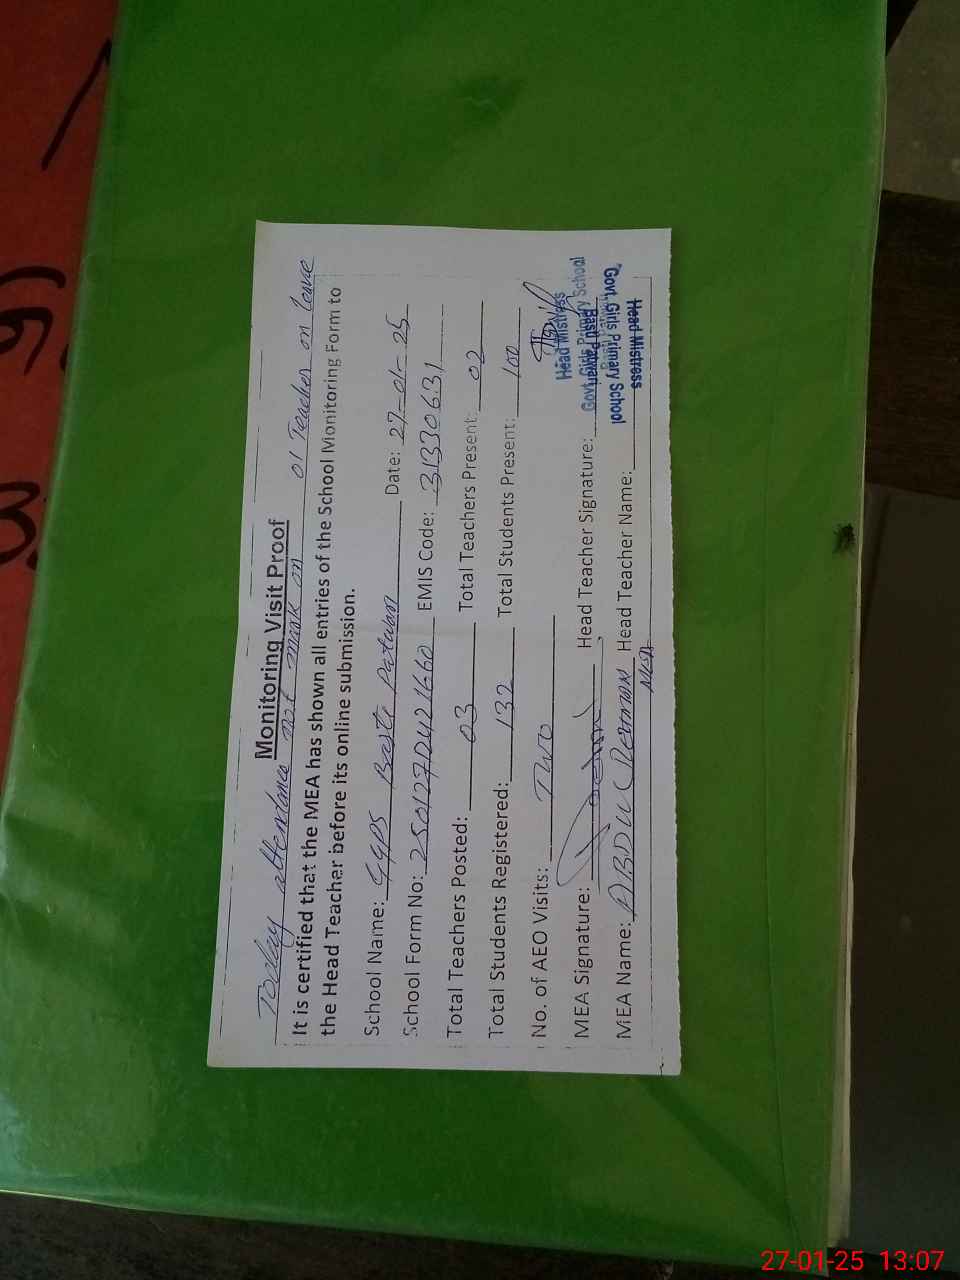 Monitoring Visit Proof
Today attendance not mark on 01 Teacher on leave
It is certified that the MEA has shown all entries of the School Monitoring Form to
the Head Teacher before its online submission.
School Name: GGPS Basti Patwari Date: 27-01-25
School Form No: EMIS Code: 31330631
Total Teachers Posted: 03 Total Teachers Present: 02
Total Students Registered: 132 Total Students Present: 100
No. of AEO Visits: Two
MEA Signature: Head Teacher Signature:
Head Mistress
Govt. Girls Primary School
MEA Name: ABDUL Head Teacher Name:
MEA
Head Mistress
Govt. Girls Primary School
27-01-25 13:07